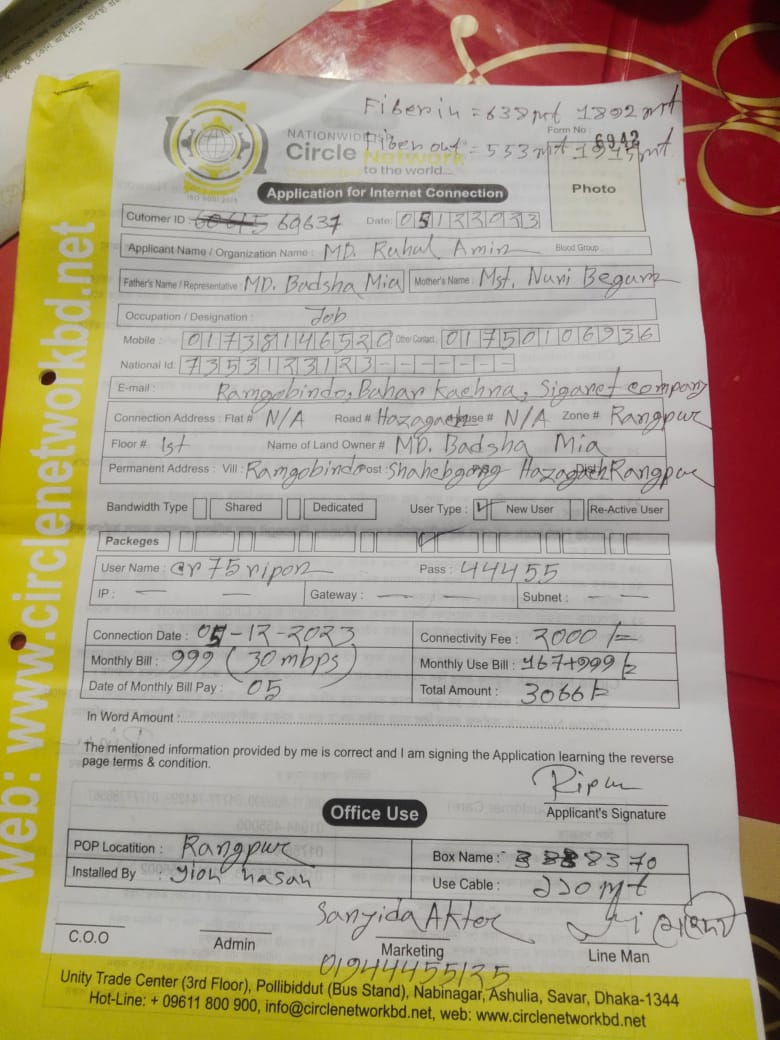 Fiber in = 638 mt 1892 mt
Form No : 6942
Fiber out = 553 mt 1975 mt
NATIONWIDE ISP
Circle Network
to the world...
ISO 9001:2015
Photo
Application for Internet Connection
Cutomer ID 60615 60637 Date: 05122023
Applicant Name / Organization Name : MD. Ruhul Amin Blood Group
Father's Name / Representative : MD. Badsha Mia Mother's Name : Mst. Nuri Begum
Occupation / Designation : Job
Mobile : 01738146520 Other Contact : 01750106936
National Id: 7353123123-------
E-mail : Ramgobindo, Bahar Kachna, Sigaret company
Connection Address : Flat # N/A Road # Hazagach House # N/A Zone # Rangpur
Floor # 1st Name of Land Owner # MD. Badsha Mia
Permanent Address : Vill : Ramgobindo Post : Shahebgong Hazagach Dist Rangpur
Bandwidth Type Shared Dedicated User Type : ✓ New User Re-Active User
Packeges ✓
User Name : cr75ripon Pass : 44455
IP : — — Gateway : — — Subnet : — —
Connection Date : 05-12-2023 Connectivity Fee : 2000/=
Monthly Bill : 999 (30 mbps) Monthly Use Bill : 167+999/=
Date of Monthly Bill Pay : 05 Total Amount : 3066/=
In Word Amount :
The mentioned information provided by me is correct and I am signing the Application learning the reverse
page terms & condition.
Ripun
Applicant's Signature
Office Use
POP Locatition : Rangpur Box Name : 8370
Installed By : Jion hasan Use Cable : 220 mt
Sanjida Akter
C.O.O Admin Marketing Line Man
01944455135
Unity Trade Center (3rd Floor), Pollibiddut (Bus Stand), Nabinagar, Ashulia, Savar, Dhaka-1344
Hot-Line: + 09611 800 900, info@circlenetworkbd.net, web: www.circlenetworkbd.net
web: www.circlenetworkbd.net